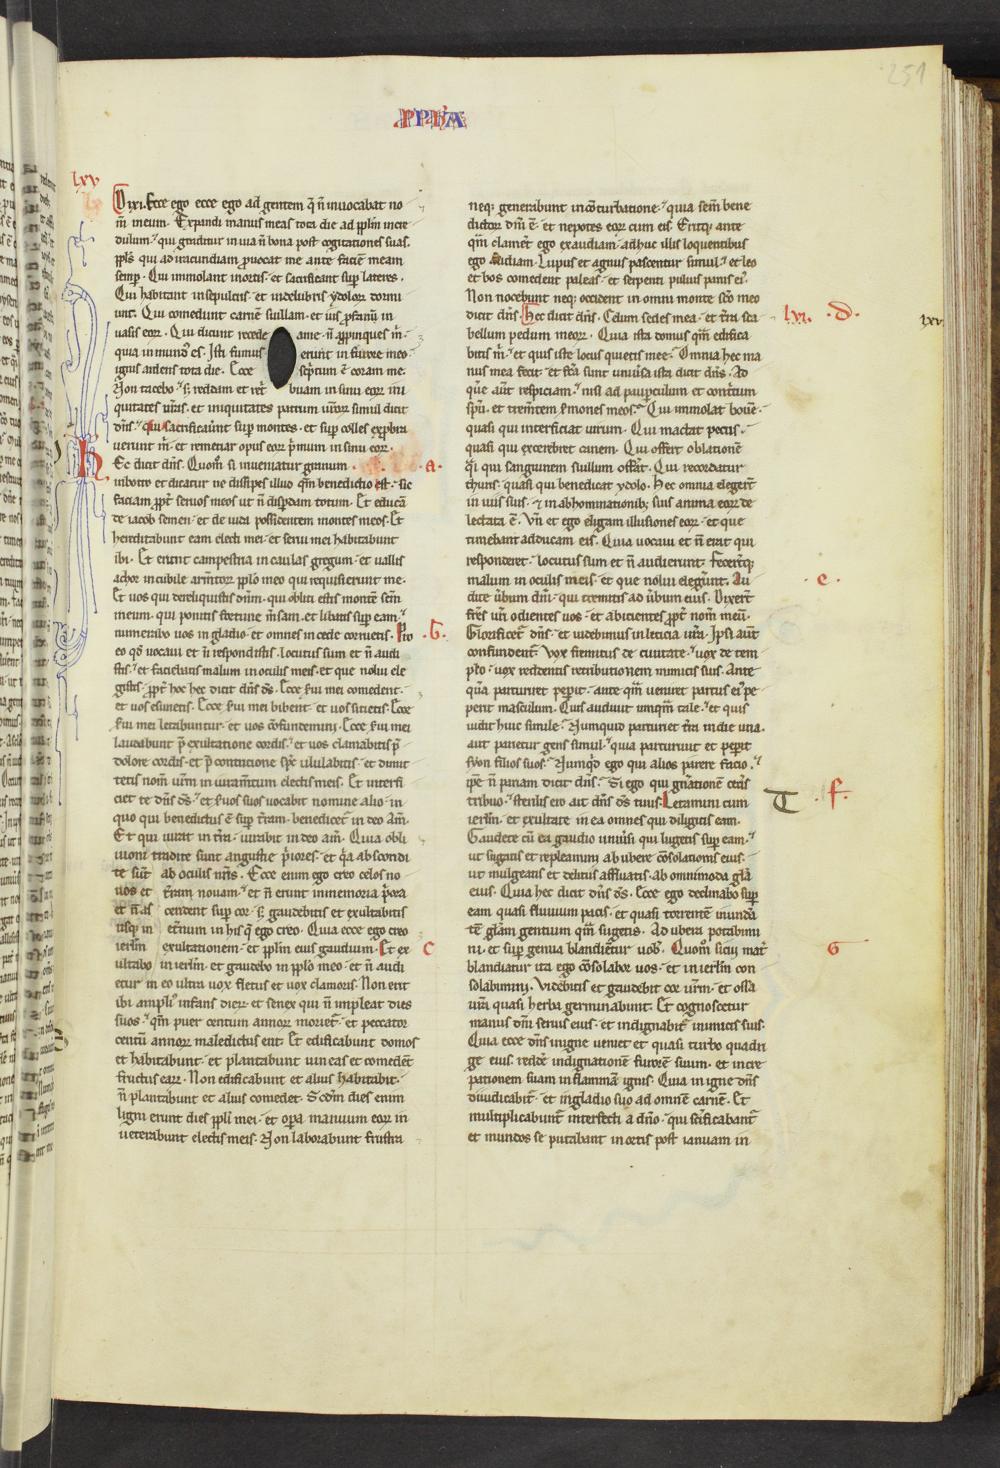 251
PPHA
lxv
Dixi. Ecce ego ecce ego ad gentem q̄ n̄ inuocabat no
m̄ meum. Expandi manus meas tota die ad pplm̄ incre
dulum. qui graditur in uia n̄ bona post cogitationes suas.
ppls̄ qui ad iracundiam ꝓuocat me ante faciē meam
semꝑ. Qui immolant in ortis. et sacrificant suꝑ lateres.
Qui habitant in sepulcris. et in delubris ydoloꝝ dormi
unt. Qui comedunt carnē suillam. et ius ꝓfanū in
uasis eoꝝ. Qui dicunt recede a me. n̄ appinques m̄.
quia inmundꝰ es. Isti fumus erunt in furore meo.
ignis ardens tota die. Ecce scptum ē coram me.
Non tacebo. sꝫ reddam et ret̄buam in sinu eoꝝ ini
quitates ur̄as. et iniquitates patrum ur̄oꝝ simul dicit
dn̄s. qui sacrificauer̄unt suꝑ montes. et suꝑ colles exꝓbra
uerunt m̄. et remetiar opus eoꝝ p̄mum in sinu eoꝝ.
Hec dicit dn̄s. Quom̄ si inueniatur granum
.a.
in botro et dicatur ne dissipes illud qm̄ benedictio est. sic
faciam ꝓpt̄ seruos meos ut n̄ disꝑdam totum. Et educā
de iacob semen. et de iuda possidentem montes meos. Et
hereditabunt eam electi mei. et serui mei habitabunt
ibi. Et erunt campestria in caulas gregum. et uallis
achor in cubile arm̄toꝝ pplo meo qui requisierunt me.
Et uos qui dereliquistis dn̄m. qui obliti estis montē sc̄m
meum. qui ponitis fortune m̄sam. et libatis suꝑ eam.
numerabo uos in gladio. et omnes in cede corruetis. Pro
.b.
eo qd̄ uocaui et n̄ respondistis. locutus sum et n̄ audi
stis. et faciebatis malum in oculis meis. et que nolui ele
gistis. ꝓpt̄ hoc hec dicit dn̄s ds̄. Ecce s̄ui mei comedent.
et uos esurietis. Ecce s̄ui mei bibent. et uos sitietis. Ecce
s̄ui mei letabuntur. et uos cōfundemini. Ecce s̄ui mei
laudabunt p̄ exultatione cordis. et uos clamabitis p̄
dolore cordis. et p̄ contritione sp̄c ululabitis. et dimit
tetis nom̄ ur̄m in iuram̄tum electis meis. Et interfi
ciet te dn̄s ds̄. et s̄uos suos uocabit nomine alio. in
quo qui benedictus ē suꝑ t̄ram. benedicet̄ in deo am̄.
Et qui iurat in t̄ra. iurabit in deo am̄. Quia obli
uioni tradite sunt angustie p̄iores. et q̄a abscondi
te sūt ab oculis nr̄is. Ecce enim ego creo celos no
uos et t̄ram nouam. et n̄ erunt in memoria p̄ora
et n̄ as cendent suꝑ cor. sꝫ gaudebitis et exultabitis
usqꝫ in et̄num in his q̄ ego creo. Quia ecce ego creo
ierlm̄ exultationem. et pplm̄ eius gaudium. Et ex
C
ultabo in ierlm̄. et gaudebo in pplo meo. et n̄ audi
etur in eo ultra uox fletus et uox clamoris. Non erit
ibi ampliꝰ infans dieꝝ. et senex qui n̄ impleat dies
suos. qm̄ puer centum annoꝝ moriet̄. et peccator
centū annoꝝ maledictus erit. Et edificabunt domos
et habitabunt. et plantabunt uineas et comedēt
fructus eaꝝ. Non edificabunt et alius habitabit.
n̄ plantabunt et alius comedet. Scd̄m dies enim
ligni erunt dies ppli mei. et oꝑa manuum eoꝝ in
ueterabunt electis meis. Non laborabunt frustra
neqꝫ generabunt in cōturbatione. quia sem̄ bene
dictoꝝ dm̄ ē. et nepotes eoꝝ cum eis. Eritqꝫ ante
qm̄ clament̄ ego exaudiam. adhuc illis loquentibus
ego audiam. Lupus et agnus pascentur simul. et leo
et bos comedent paleas. et serpenti puluis panis eiꝰ.
Non nocebunt neqꝫ occident in omni monte sc̄o meo
dicit dn̄s. Hec dicit dn̄s. Celum sedes mea. et t̄ra sca
lxvi. .d.
lxvi
bellum pedum meoꝝ. Que ista domus qm̄ edifica
bitis m̄. et quis iste locus quietis mee. Omnia hec ma
nus mea fecit. et fc̄a sunt uniūsa ista dicit dn̄s. Ad
quē aūt respiciam. nisi ad pauꝑculum et cont̄tum
spū. et trem̄tem s̄mones meos. Qui immolat bouē.
quasi qui interficiat uirum. Qui mactat pecus.
quasi qui excerebret canem. Qui offert oblationē
q̄i qui sanguinem suillum offert. Qui recordatur
thuris. quasi qui benedicat ydolo. Hec omnia elegert̄
in uiis suis. et in abhominationibꝫ suis anima eoꝝ de
lectata ē. Vn̄ et ego eligam illusiones eoꝝ. et que
timebant adducam eis. Quia uocaui et n̄ erat qui
responderet. locutus sum et n̄ audierunt. fecert̄qꝫ
malum in oculis meis. et que nolui eleger̄unt. Au
.e.
dite ūbum dn̄i. qui tremitis ad ūbum eius. Dixert̄
fr̄es ur̄i odientes uos. et abicientes ꝓpt̄ nom̄ meū.
Glorificet̄ dn̄s. et uidebimus in leticia ur̄a. Ipsi aūt
confundent̄. Vox fremitus de ciuitate. uox de tem
plo. uox reddentis retributionem inimicis suis. Ante
q̄ꝫ parturiret peꝑit. ante qm̄ ueniret partus eiꝰ pe
perit masculum. Quis audiuit umqm̄ tale. et quis
uidit huic simile. Numquid parturiet t̄ra in die una.
aut parietur gens simul. quia parturiuit et peꝑit
syon filios suos. Numqd̄ ego qui alios parere facio.
ip̄e n̄ pariam dicit dn̄s. Si ego qui gn̄ationē cet̄is
tribuo. sterilis ero ait dn̄s ds̄ tuus. Letamini cum
.f.
ierlm̄. et exultate in ea omnes qui diligitis eam.
Gaudete cū ea gaudio uniūsi qui lugetis suꝑ eam.
ut sugatis et repleamini ab ubere cōsolationis eius.
ut mulgeatis et deliciis affluatis. ab omnimoda gl̄a
eius. Quia hec dicit dn̄s ds̄. Ecce ego declinabo suꝑ
eam quasi fluuium pacis. et quasi torrentē inunda
tē gl̄am gentium qm̄ sugens. Ad ubera portabimi
ni. et suꝑ genua blandient̄ur uob̄. Quom̄ si cui mat̄
G
blandiatur ita ego cōsolabor uos. et in ierlm̄ con
solabimini. Videbitis et gaudebit cor ur̄m. et ossa
ur̄a quasi herba germinabunt. Et cognoscetur
manus dn̄i seruis eius. et indignabit̄ inimicis suis.
Quia ecce dn̄s in igne ueniet et quasi turbo quadri
ge eius. reddē indignationē furorē suum. et incre
pationem suam in flamma ignis. Quia in igne dn̄s
diiudicabit̄. et in gladio suo ad omnē carnē. Et
multiplicabunt̄ interfecti a dn̄o. qui sc̄ificabant̄
et mundos se putabant in ortis post ianuam in